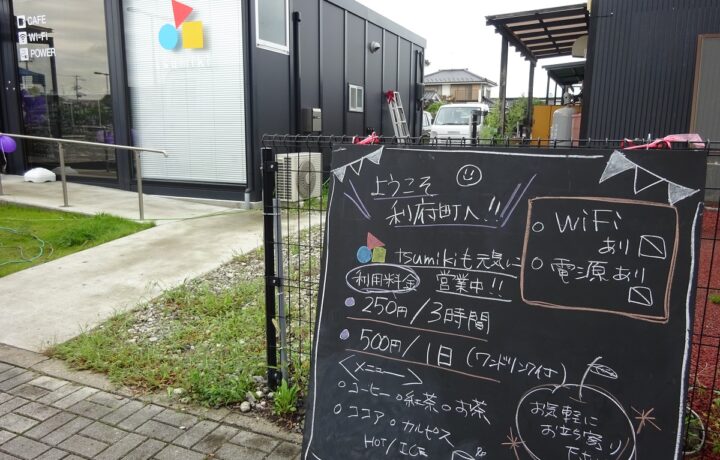 CAFE
Wi-Fi
POWER
tsumiki
ようこそ
利府町へ!!
tsumikiも元気に
営業中!!
WiFi
あり
電源あり
利用料金
250円/3時間
500円/1日(ワンドリンク付)
<メニュー>
コーヒー 紅茶 お茶
ココア カルピス
HOT/ICE
お気軽に
お立ち寄り
下さい